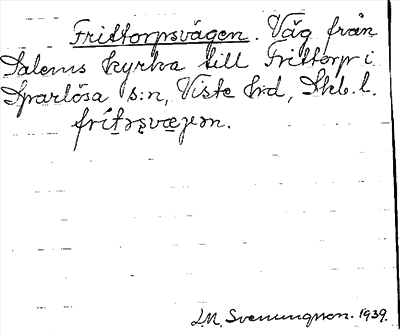 Frittorpsvägen. Väg från
Salems kyrka till Frittorp i
Sparlösa s:n, Viste hd, Skb. l.
J.M. Svenungsson. 1939.